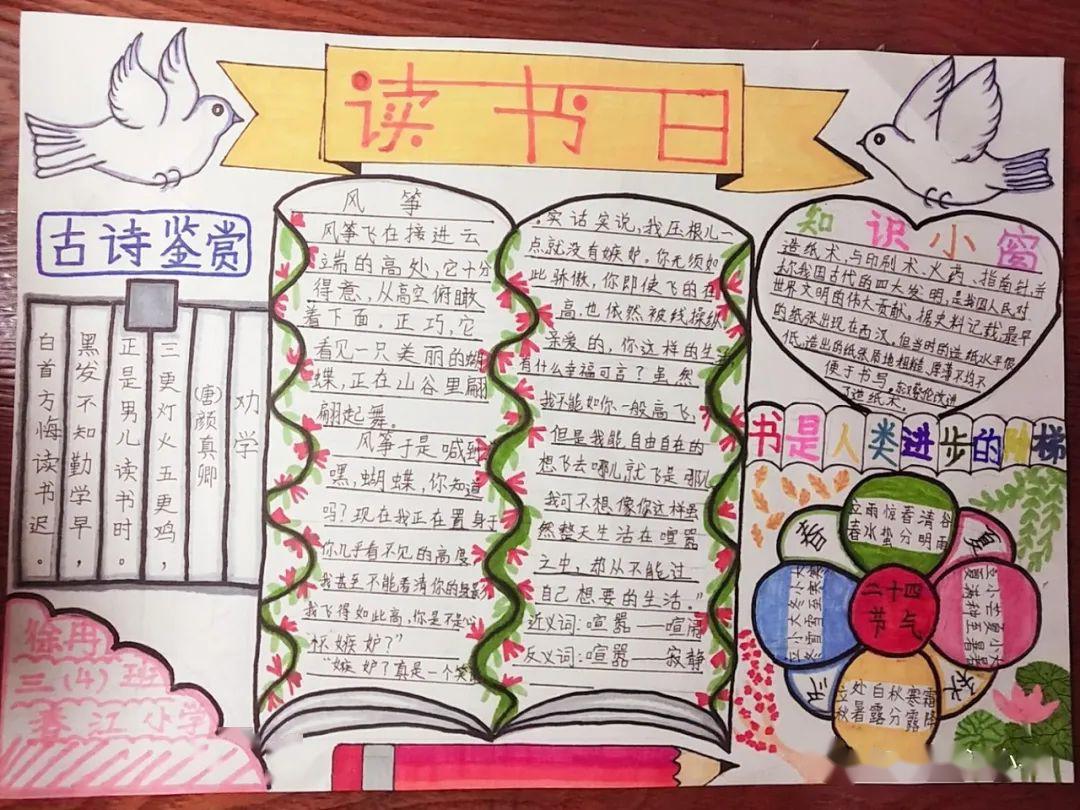 读书日
古诗鉴赏
劝学
(唐)颜真卿
三更灯火五更鸡,
正是男儿读书时。
黑发不知勤学早,
白首方悔读书迟。
徐冉
三(4)班
春江小学
风 筝
风筝飞在接进云
端的高处,它十分
得意,从高空俯瞰
着下面。正巧,它
看见一只美丽的蝴
蝶,正在山谷里翩
翩起舞。
风筝于是喊到
嘿,蝴蝶,你知道
吗?现在我正在置身于
你几乎看不见的高度
我甚至不能看清你的身影
我飞得如此高,你是不是心
怀嫉妒?"
"嫉妒?真是一个笑
.实话实说,我压根儿一
点就没有嫉妒。你无须如
此骄傲,你即使飞的在
高,也依然被线操纵
亲爱的,你这样的生
有什么幸福可言?虽然
我不能如你一般高飞,
但是我能自由自在的
想飞去哪儿就飞是哪儿
我可不想像你这样虽
然整天生活在喧嚣
之中,却从不能过
自己想要的生活。"
近义词:喧嚣——喧闹
反义词:喧嚣——寂静
知识小窗
造纸术,与印刷术、火药、指南针,并
称我国古代的四大发明,是我国人民对
世界文明的伟大贡献。据史料记载,最早
的纸张出现在西汉,但当时的造纸水平很
低,造出的纸张质地粗糙、厚薄不均不
便于书写。东汉蔡伦改进
了造纸术。
书是人类进步的阶梯
春
立雨惊春清谷
春水蛰分明雨
夏
立小芒夏小大
夏满种至暑暑
二十四
节气
立小大冬小大
冬雪雪至寒寒
冬
秋
立处白秋寒霜
秋暑露分露降